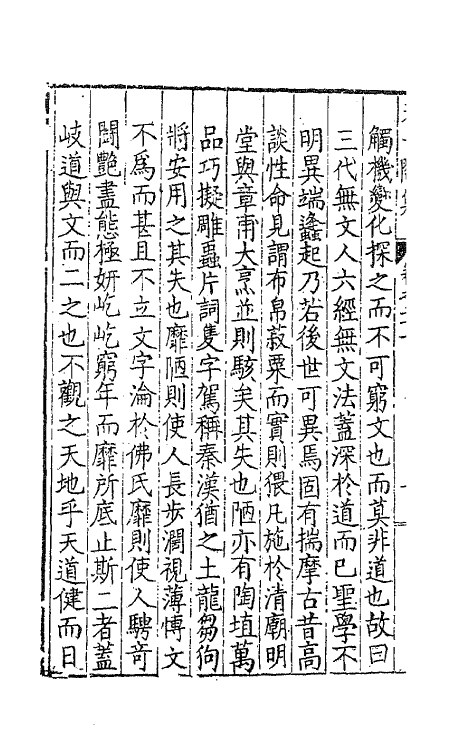 觸機變化探之而不可窮文也而莫非道也故曰
三代無文人六經無文法蓋深於道而已聖學不
明異端蠭起乃若後世可異焉固有揣摩古昔高
談性命見謂布帛菽粟而實則猥凡施於清廟明
堂與章甫大烹並則駭矣其失也陋亦有陶埴萬
品巧擬雕蟲片詞隻字駕稱秦漢猶之土龍芻狗
將安用之其失也靡陋則使人長步濶視薄愽文
不爲而甚且不立文字淪於佛氏靡則使人騁竒
鬬艷盡態極妍屹屹窮年而靡所底止斯二者蓋
岐道與文而二之也不觀之天地乎天道健而日